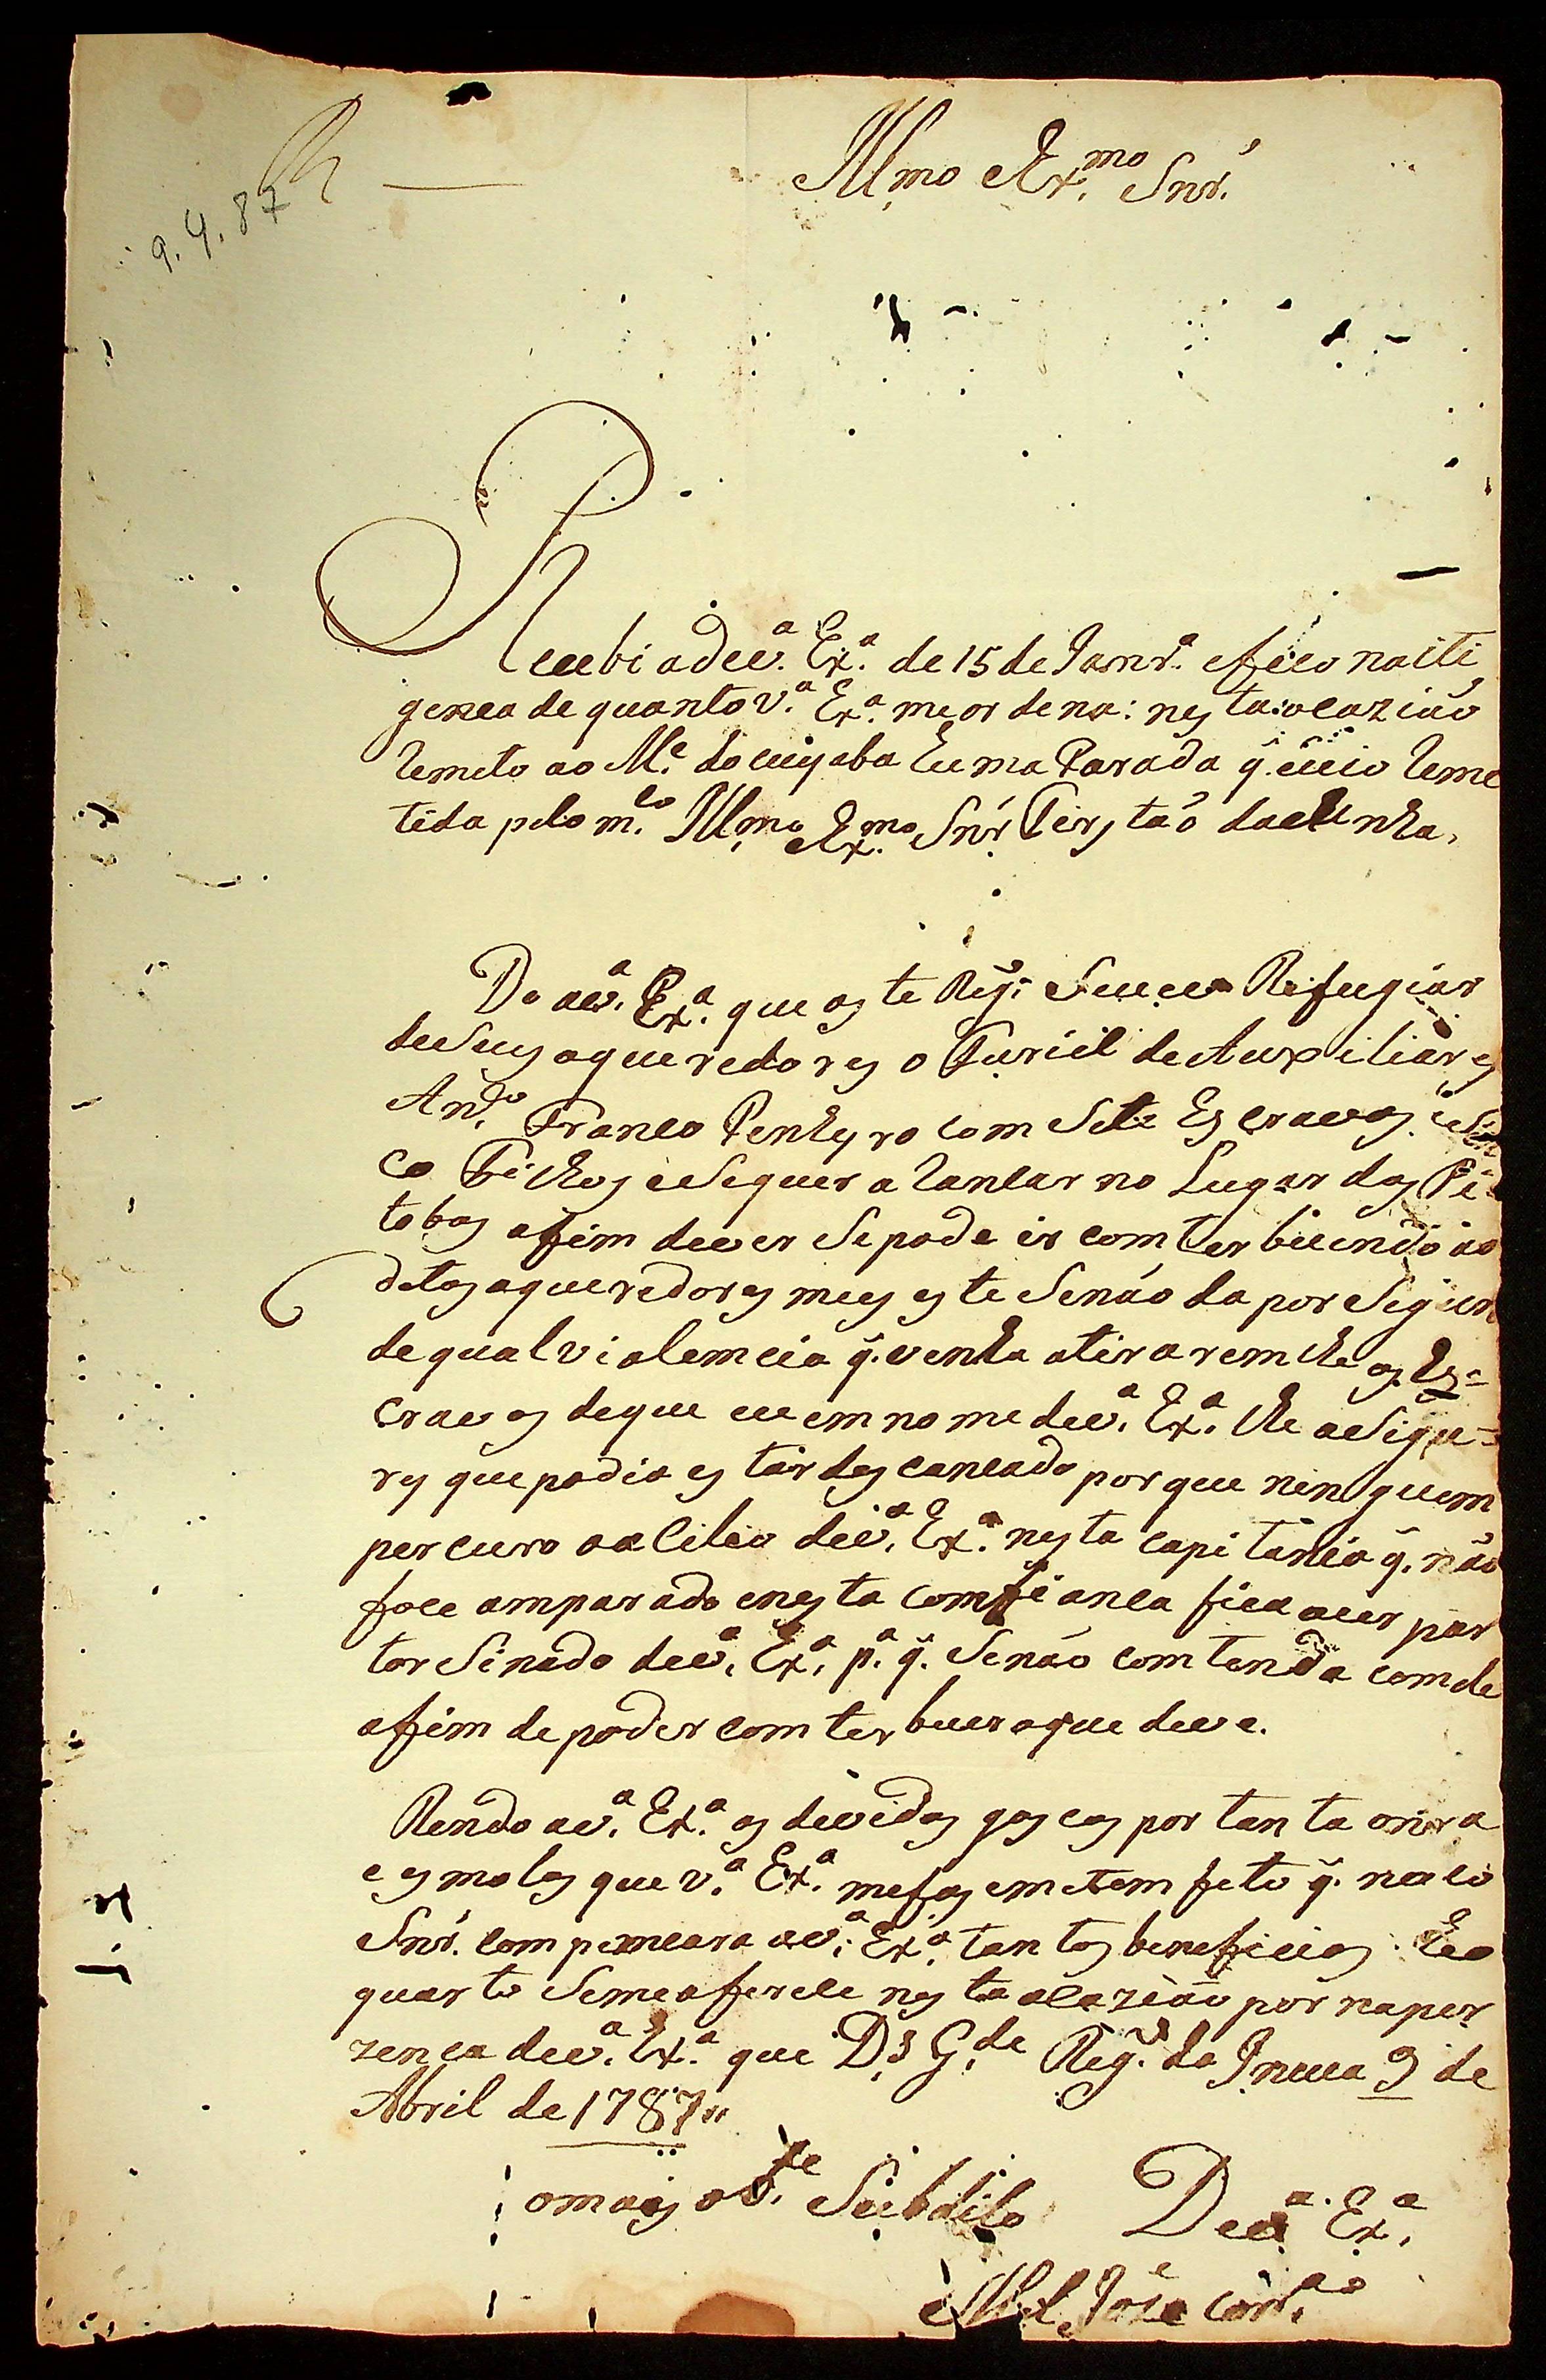 9.4.87
Illmo e Ex.mo Snr.
Recebi a de V.ª Ex.ª de 15 de Janr.º e fico na itili
genca de quanto V.ª Ex.ª me ordena: nesta ocaziaõ
Remeto ao M.e do Cuyaba huma Parada q. veio Reme
tida pelo m.to Illmo e Ex.mo Snr. Terstaõ da Cunha,
Do a V.ª Ex.ª que a este Reg.º Se veo Refugiar
de Seus aqueredores o Furiel de Auxiliares
Ant.º Franco Penheyro com Sete Escravos e Sin
co Fichos e Seguer a Rancar no Lugar das Pi-
tobas afim de ver Se pode ir comterbuindo ao
ditos aqueredores mes este Se naõ da por Segur
de qual violemcia q. venha a tiraremlhe os Es=
cravos de que eu em nome de V.ª Ex.ª lhe a Sigu=
rey que podia estar descancado porque ninguem
percuro o alcilio de V.ª Ex.ª nesta capitania q. naõ
foce amparado e nesta comfianca fica a ver por
tor Sinado de V.ª Ex.ª p.ª q. Se naõ comtenda com ele
afim de poder comterbuer o que deve.
Rendo a V.ª Ex.ª os devidos gracas por tanta onrra
e esmolas que V.ª Ex.ª me fas em e tem feto q. na co
Snr. compemcara a V.ª Ex.ª tantos beneficios. he o
quarto Se me oferece nesta ocaziaõ por na per
zenca de V.ª Ex.ª que D.s G.de Reg.º da Incua 9 de
Abril de 1787,,
o mais ob.te Subdito De V.ª Ex.ª
Mel Joze Corr.ª